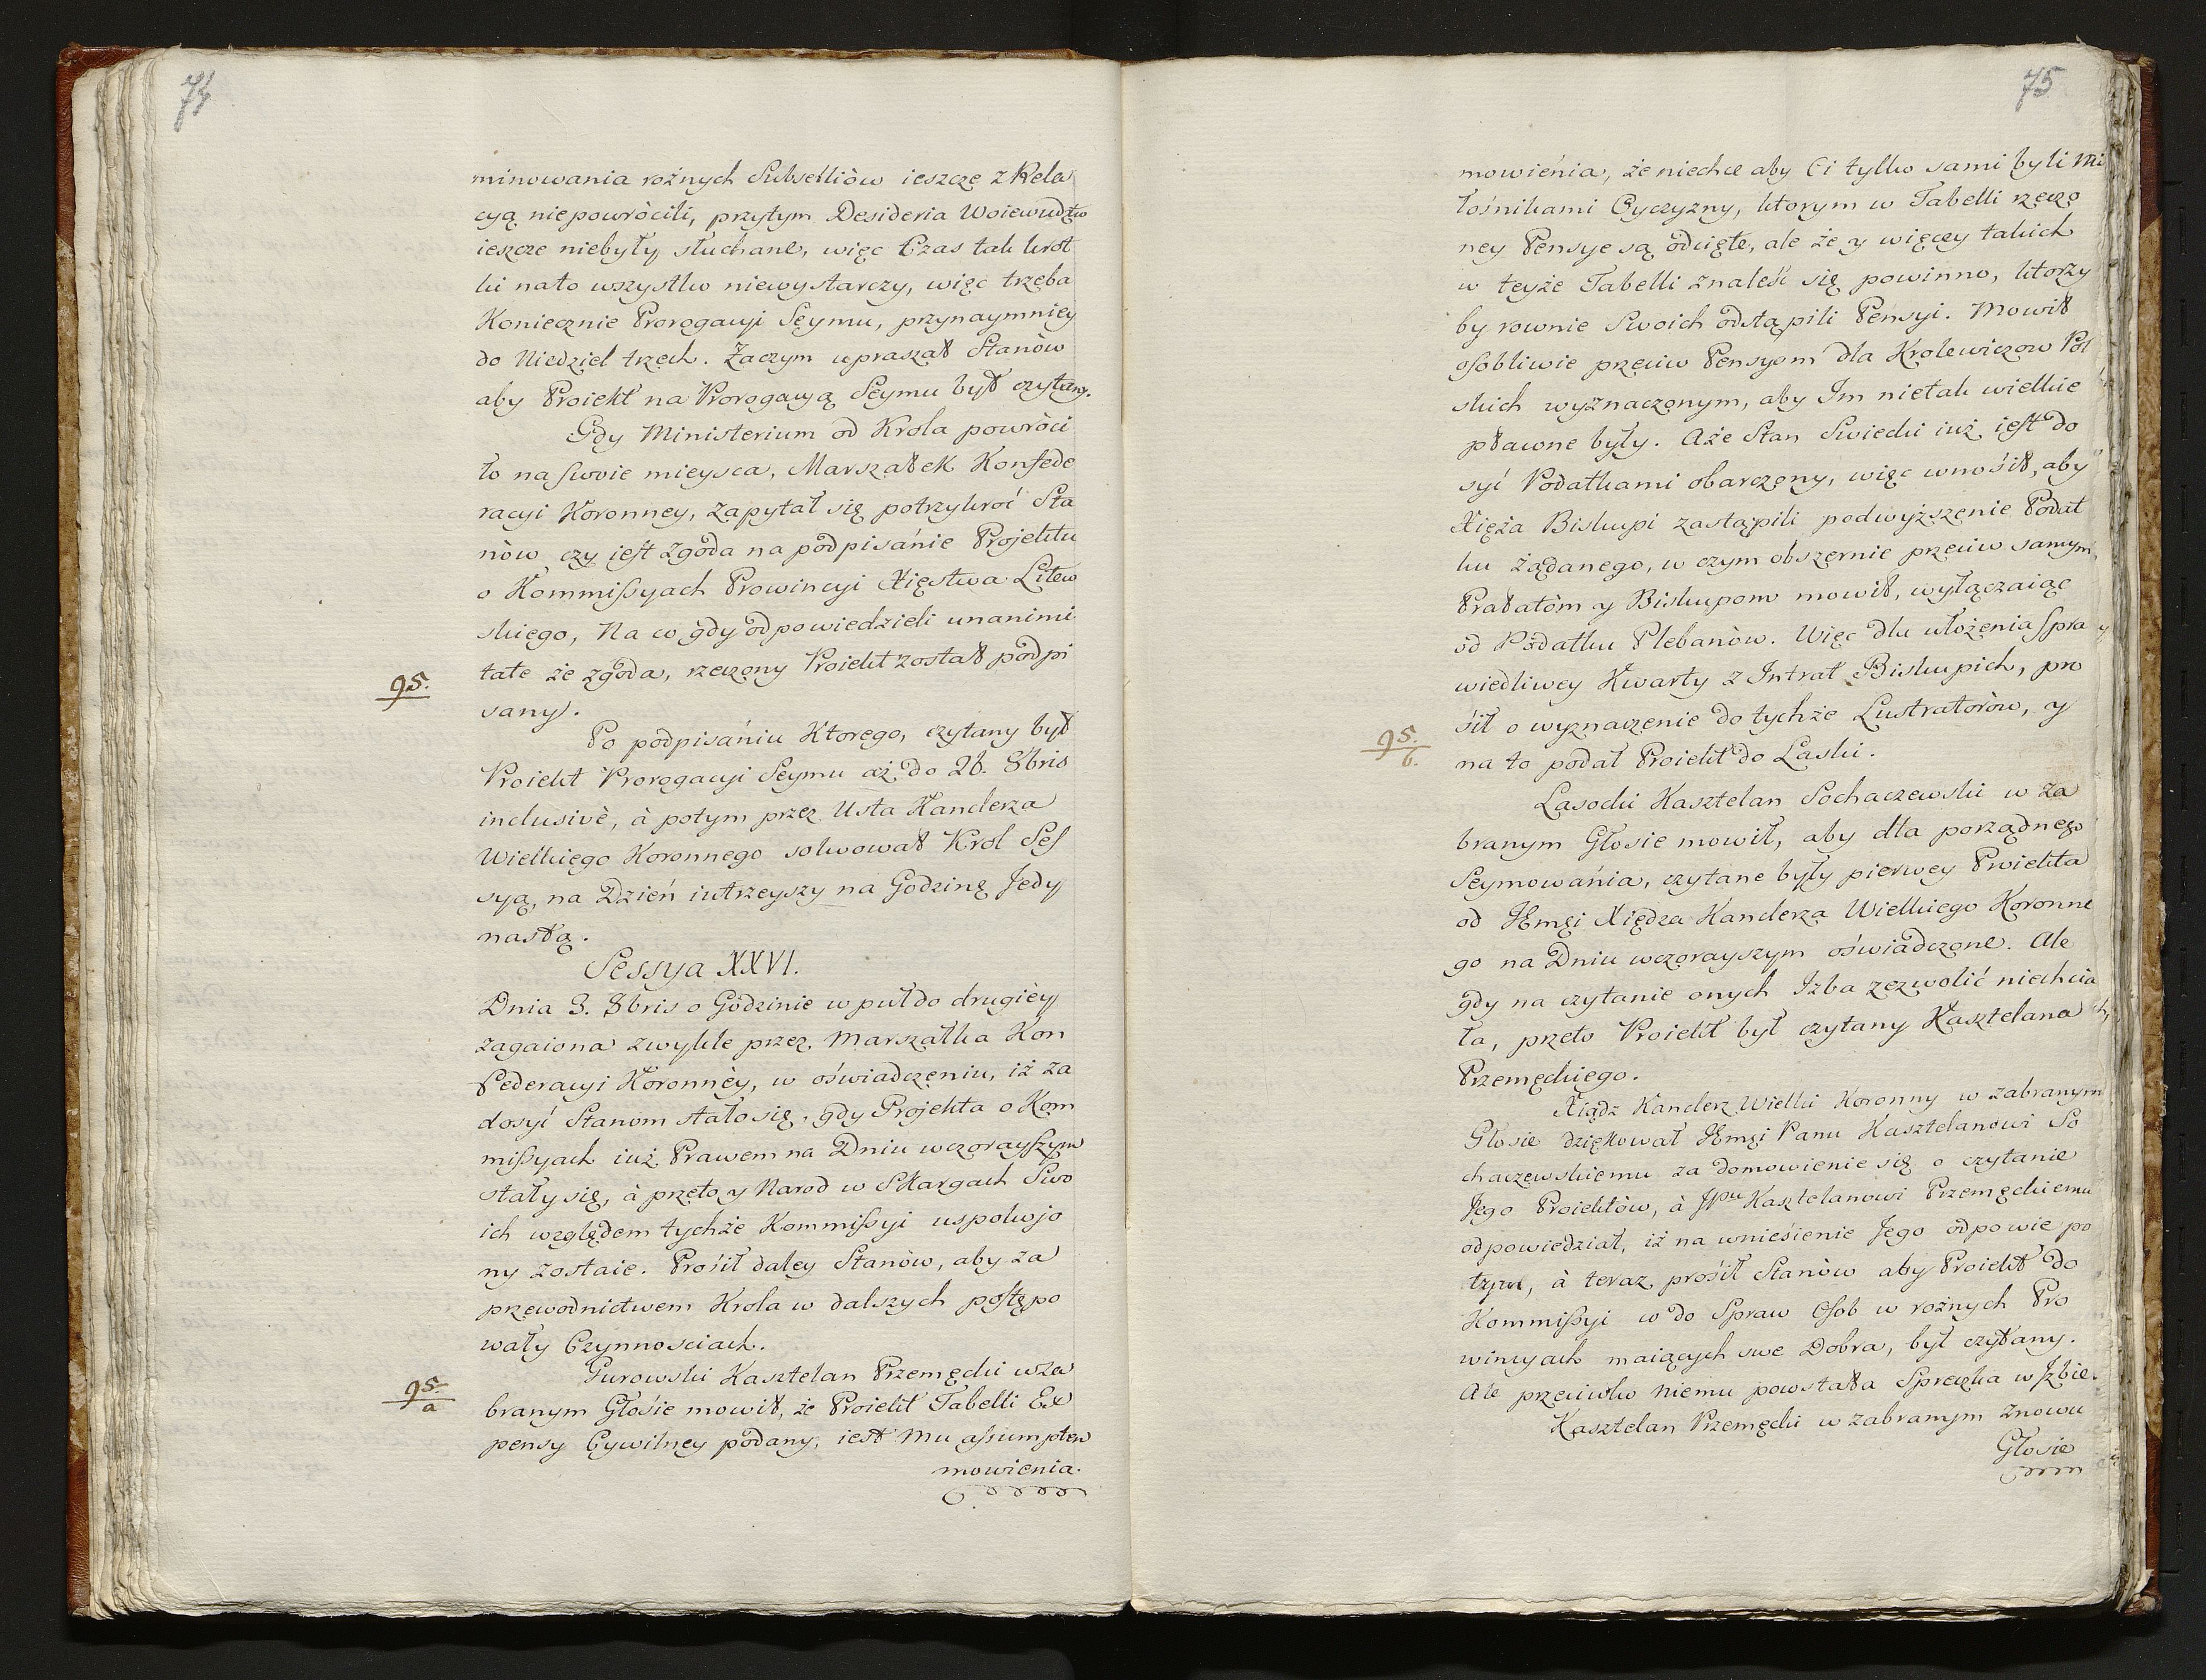 74
minowania rożnych Subselliòw ieszczę z Rela
cyą niepowròcili, przytym Desideria Woiewudztw
ieszcze niebyły słuchane, więc Czas tak krot
ki nato wszystko niewystarczy, więc trzęba
Koniecznie Prorogacyi Sęymu, przynaymniey
do Niedziel trzech. Zaczym upraszał Stanòw
aby Proiekt na Prorogacyą Seymu był czytany.
Gdy Ministerium od Krola powròci
ło na swoie mieysca, Marszałek Konfede
racyi Koronney, zapytał się potrzykroć Sta
nòw czy iest zgoda na podpisánie Projektu
o Kommissyach Prowincyi Xięstwa Litew
skiego, Na co gdy odpowiedzieli unanimi
tate że zgoda, rzeczony Proiekt został podpi
95.
sany.
Po podpisániu Ktorego, czytany był
Proiekt Prorogacyi Seymu aż do 26. 8bris
inclusivè, à potym przez Usta Kanclerza
Wielkiego Koronnego solwował Krol Ses
syą, na Dzień iutrzeyszy na Godzinę Jedy
nastą.
Sessya XXVI.
Dnia 3. 8bris o Godzinie w puł do drugiéy
zagaiona zwykle przez Marszałka Kon
federacyi Koronnèy, w oświadczęniu, iż za
dosyć Stanom stało się, gdy Projekta o Kom
missyach iuż Prawem na Dniu wczorayszym
stały się, à przęto y Narod w Skargach Swo
ich względem tychże Kommissyi uspokojo
ny zostaie. Prósił daley Stanòw, aby za
przewodnictwem Krola w dalszych postępo
wały Czynnosciach.
Gurowski Kasztelan Przemęcki w za
95.
a
branym Głosie mowił, że Proiekt Tabelli Ex
pensy Cywilney podany, iest Mu assumptem
mowienia.
75
mowieńia, że niechce aby Ci tylko sami byli Mi
łośnikami Oyczyzny, ktorym w Tabelli rzęczo
ney Pensye są odcięte, ale że y więcey takich
w teyże Tabelli znaleść się powinno, ktorzy
by rownie Swoich odstąpili Pensyi. Mowił
osobliwie przeciw Pensyom dla Krolewiczow Pol
skich wyznaczonym, aby Im nietak wielkie
płacone były. A że Stan Swiecki iuż iest do
syć Podatkami obarczony, więc wnośił, aby
Xięża Biskupi zastąpili podwyższenie Podat
ku żądanego, w czym obszernie przeciw samym
Prałatòm y Biskupom mowił, wyłączaiąc
od Podatku Plebanòw. Więc dla ułożenia spra
wiedliwey Kwarty z Intrat Biskupich, pro
śił o wyznaczenie do tychże Lustratoròw, y
95.
b.
na to podał Proiekt do Laski.
Lasocki Kasztelan Sochaczewski w za
branym Głosie mowił, aby dla porządnego
Seymowánia, czytane były pierwey Proiekta
od JEmęi Xiędza Kanclerza Wielkiego Koronne
go na Dniu wczorayszym oświadczone. Ale
gdy na czytanie onych Izba zezwolić niechcia
ła, przeto Proiekt był czytany Kasztelana
Przemęckiego.
Xiądz Kanclerz Wielki Koronny w zabranym
Głosie dziękował JEmęi Panu Kasztelanowi So
chaczewskiemu za domowienie się o czytanie
Jego Proiektòw, à JPu Kasztelanowi Przemęckiemu
odpowiedział, iż na wnieśienie Jego odpowie po
tym, à teraz prośił Stanòw aby Proiekt do
Kommissyi w do Spraw Osob w rożnych Pro
wincyach maiących swe Dobra, był czytany.
Ale przeciwko niemu powstała Sprzęczka w Izbie.
Kasztelan Przemęcki w zabranym znowu
Głosie